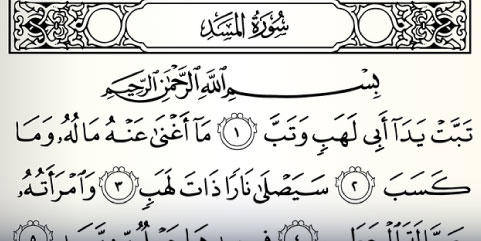 سُورَةُ المَسَدِ
بِسْمِ اللَّهِ الرَّحْمَٰنِ الرَّحِيمِ
تَبَّتْ يَدَآ أَبِى لَهَبٍ وَتَبَّ ١ مَآ أَغْنَىٰ عَنْهُ مَالُهُۥ وَمَا
كَسَبَ ٢ سَيَصْلَىٰ نَارًا ذَاتَ لَهَبٍ ٣ وَٱمْرَأَتُهُۥ